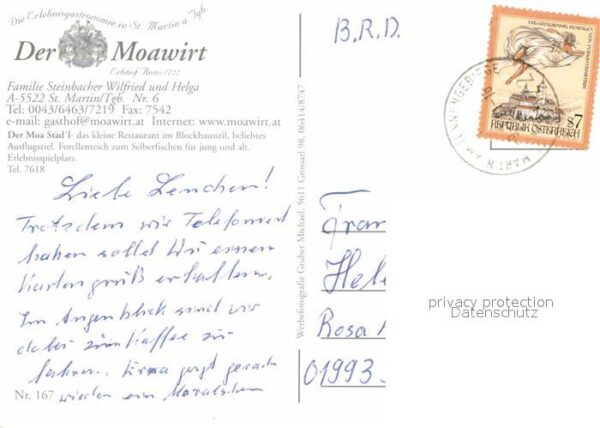 Die Erlebnisgastronomie in St. Martin a. Tgb.
Der Moawirt
Erbhof Anno 1722
Familie Steinbacher Wilfried und Helga
A-5522 St. Martin/Tgb. Nr. 6
Tel: 0043/6463/7219 Fax: 7542
e-mail: gasthof@moawirt.at Internet: www.moawirt.at
Der Moa Stad'l- das kleine Restaurant im Blockhausstil, beliebtes
Ausflugsziel. Forellenteich zum Selberfischen für jung und alt.
Erlebnisspielplatz.
Tel. 7618
Liebe Lenchen!
Trotzdem wir Telefoniert
haben sollst Du einen
Kartengruß erhalten.
Im Augenblick sind wir
dabei zum Kaffee zu
fahren. Erma gerade
wieder ein
Nr. 167
Werbefotografie Gruber Michael, 5611 Grossarl 98, 06414/8747
B.R.D.
S7
REPUBLIK ÖSTERREICH
MARTIN AM TENNENGEBIRGE
Frau
Hele
Rosa
01993
privacy protection
Datenschutz